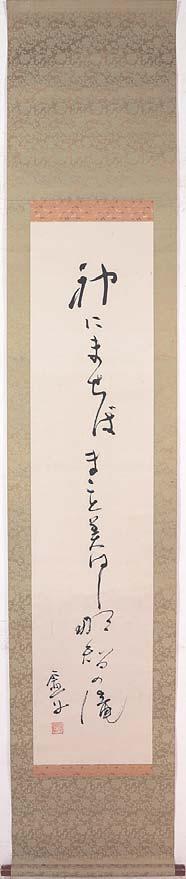 神にませばまこと美はし那智の瀧
虚子